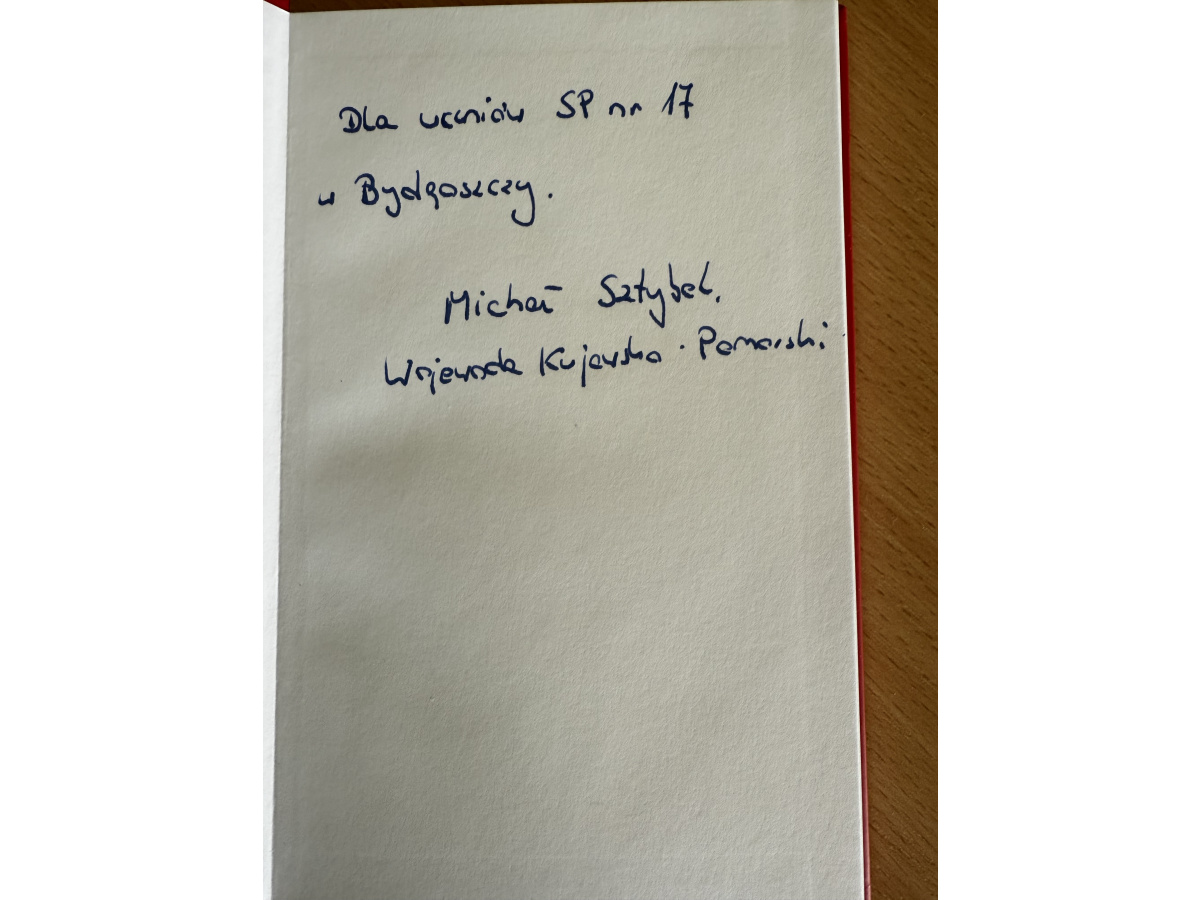 Dla uczniów SP nr 17
w Bydgoszczy.
Michał Sztybel,
Wojewoda Kujawsko-Pomorski